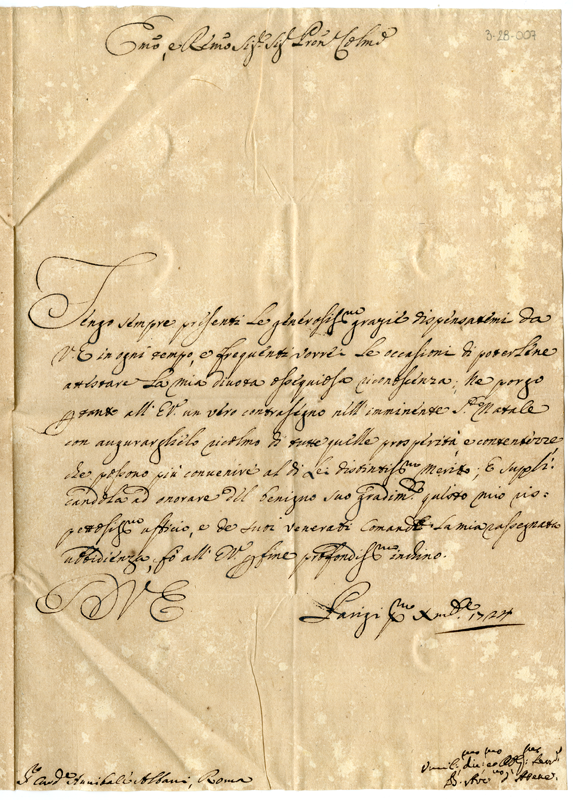 3-28-007
Emo, e Rmo Sigr Sigr Pron Colmo
Tengo sempre presenti le generosissme grazie dispensatemi da
V.E in ogni tempo, e frequenti vorrei le occasioni di poterlene
attestare la mia divota ossequiosa riconoscenza; Ne porgo
ptanto all' E.V. un vero contrasegno nell'imminente S. Natale
con augurarghielo ricolmo di tutte quelle prosperità, e contentezze
che possono più convenire al di Lei distintissmo Merito; E suppli-
candola ad onorare del benigno suo gradimto questo mio ris-
pettosissmo ufficio, e de suoi venerati Comandi la mia rassegnata
ubbidienza, fò all' E.V. p fine profondissmo inchino.
D V E
Parigi Xmbre 1724
Sr Cardle Annibale Albani, Roma
Umilmo divmo Obbmo Servre
d'Atene.